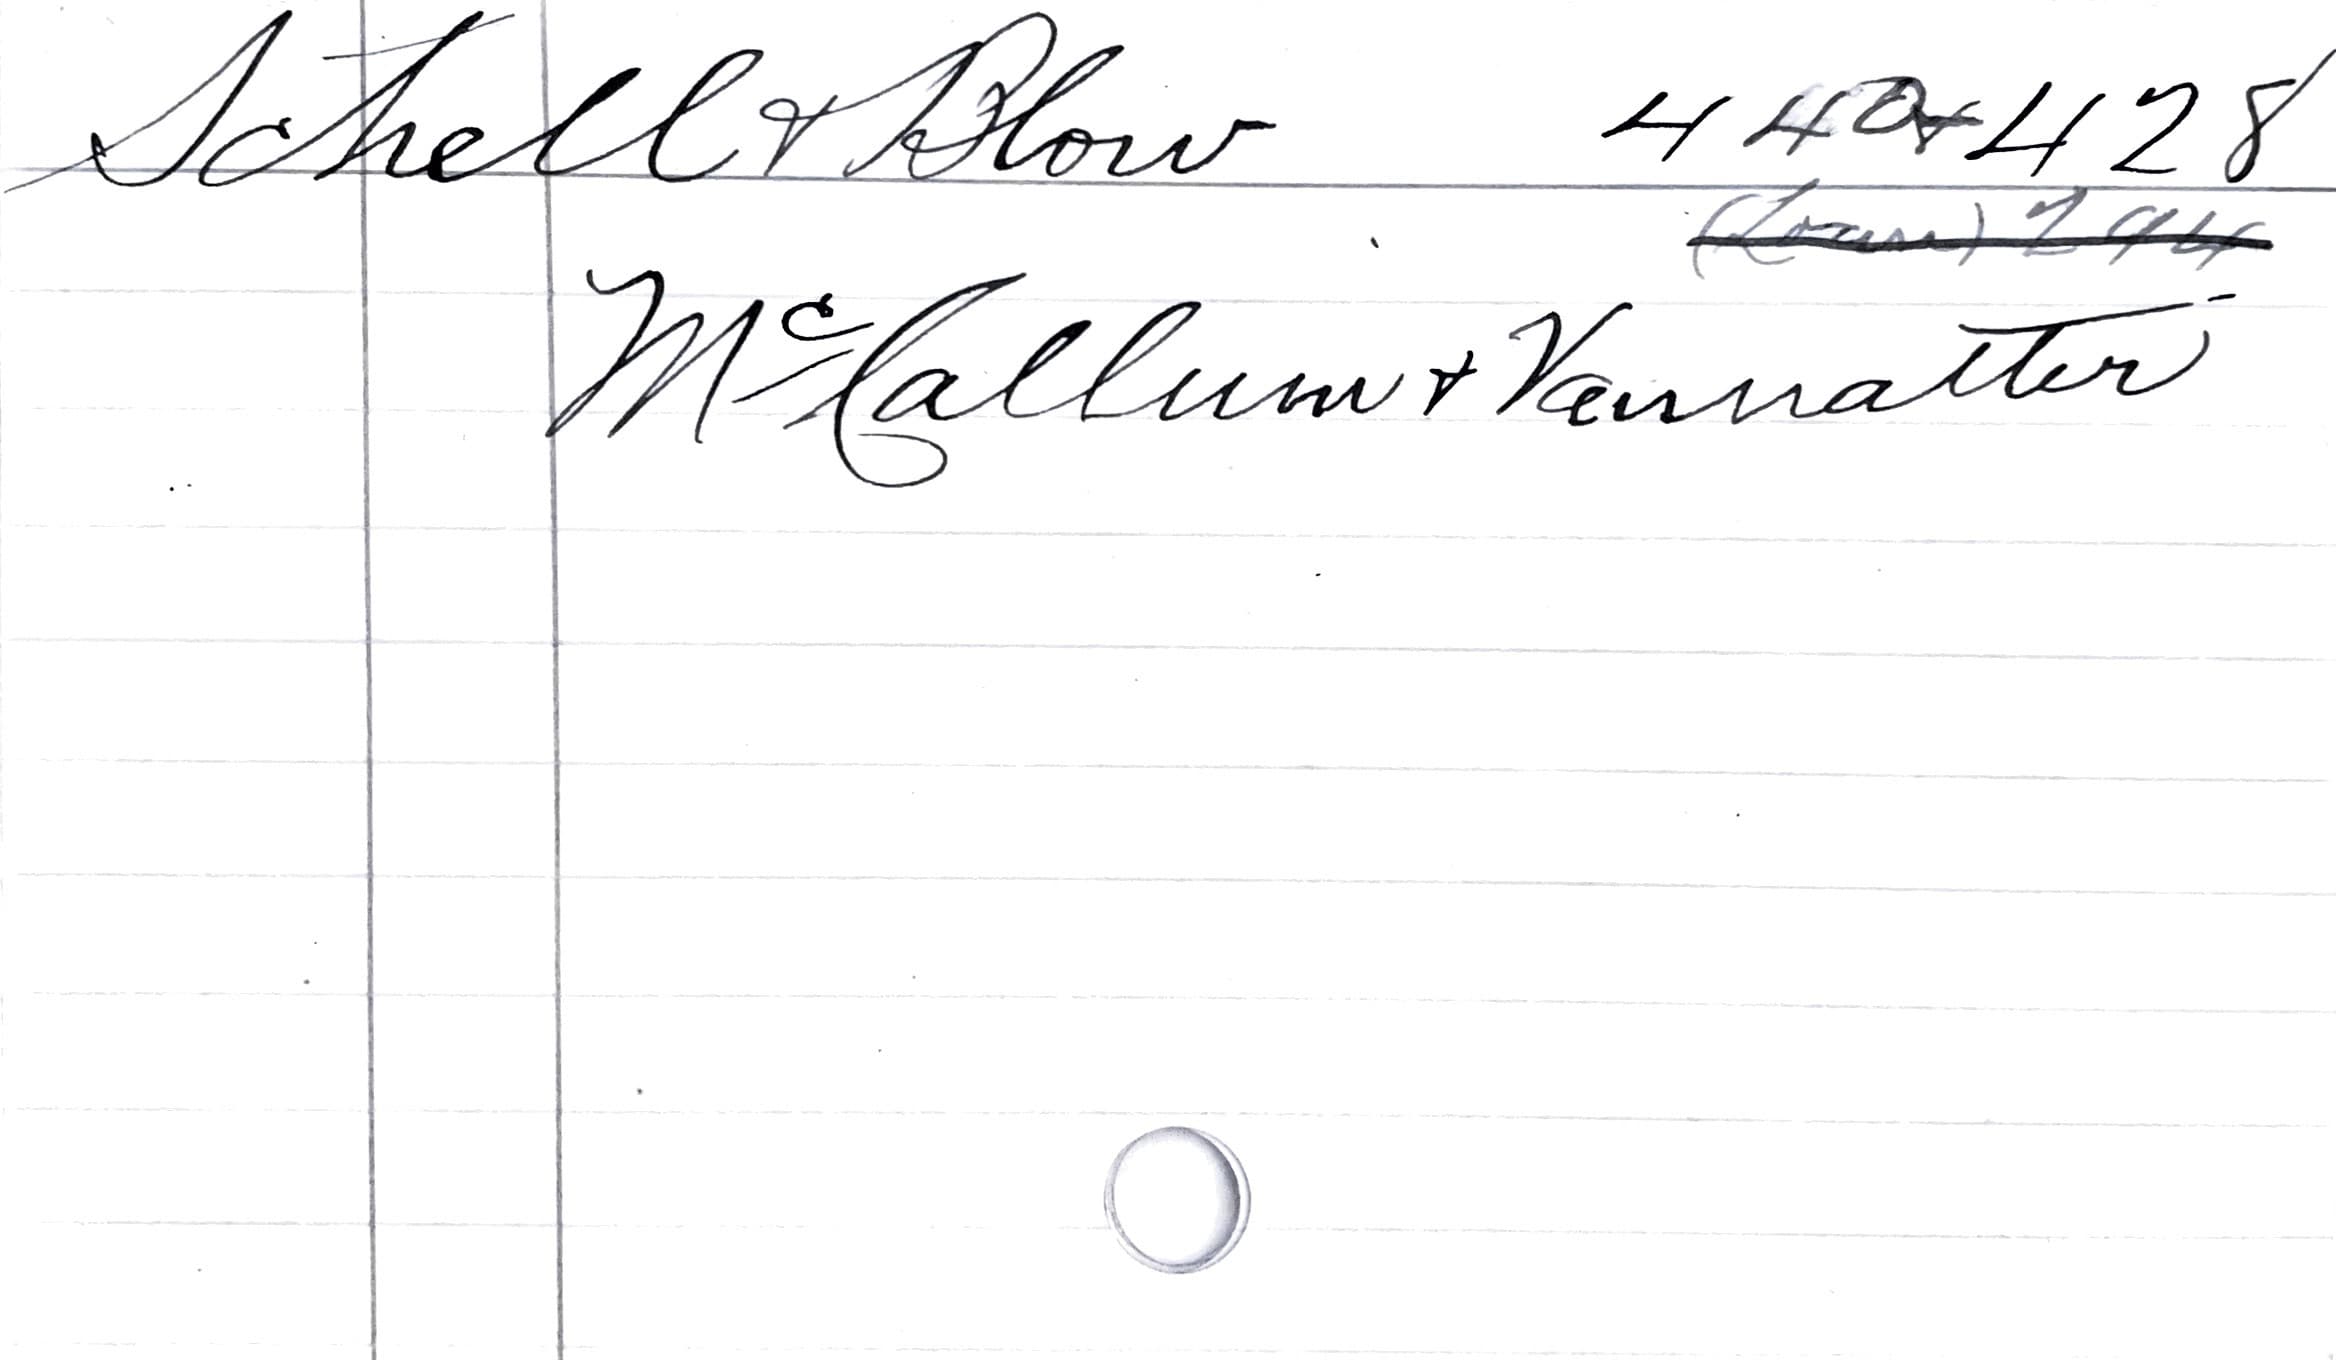 Schell & Blow 4 4 0 & 428
(Loan) 294
McCallum & Vannatter